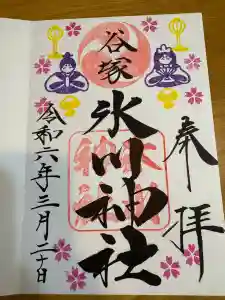 奉拝
谷塚
氷川神社
令和六年三月二十日